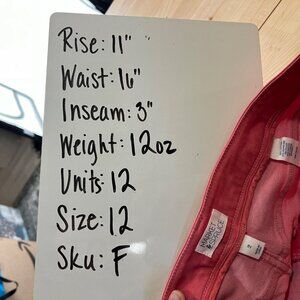 Rise: 11"
Waist: 16"
Inseam: 3"
Weight: 12oz
Units: 12
Size: 12
Sku: F
MARKET
& SPRUCE